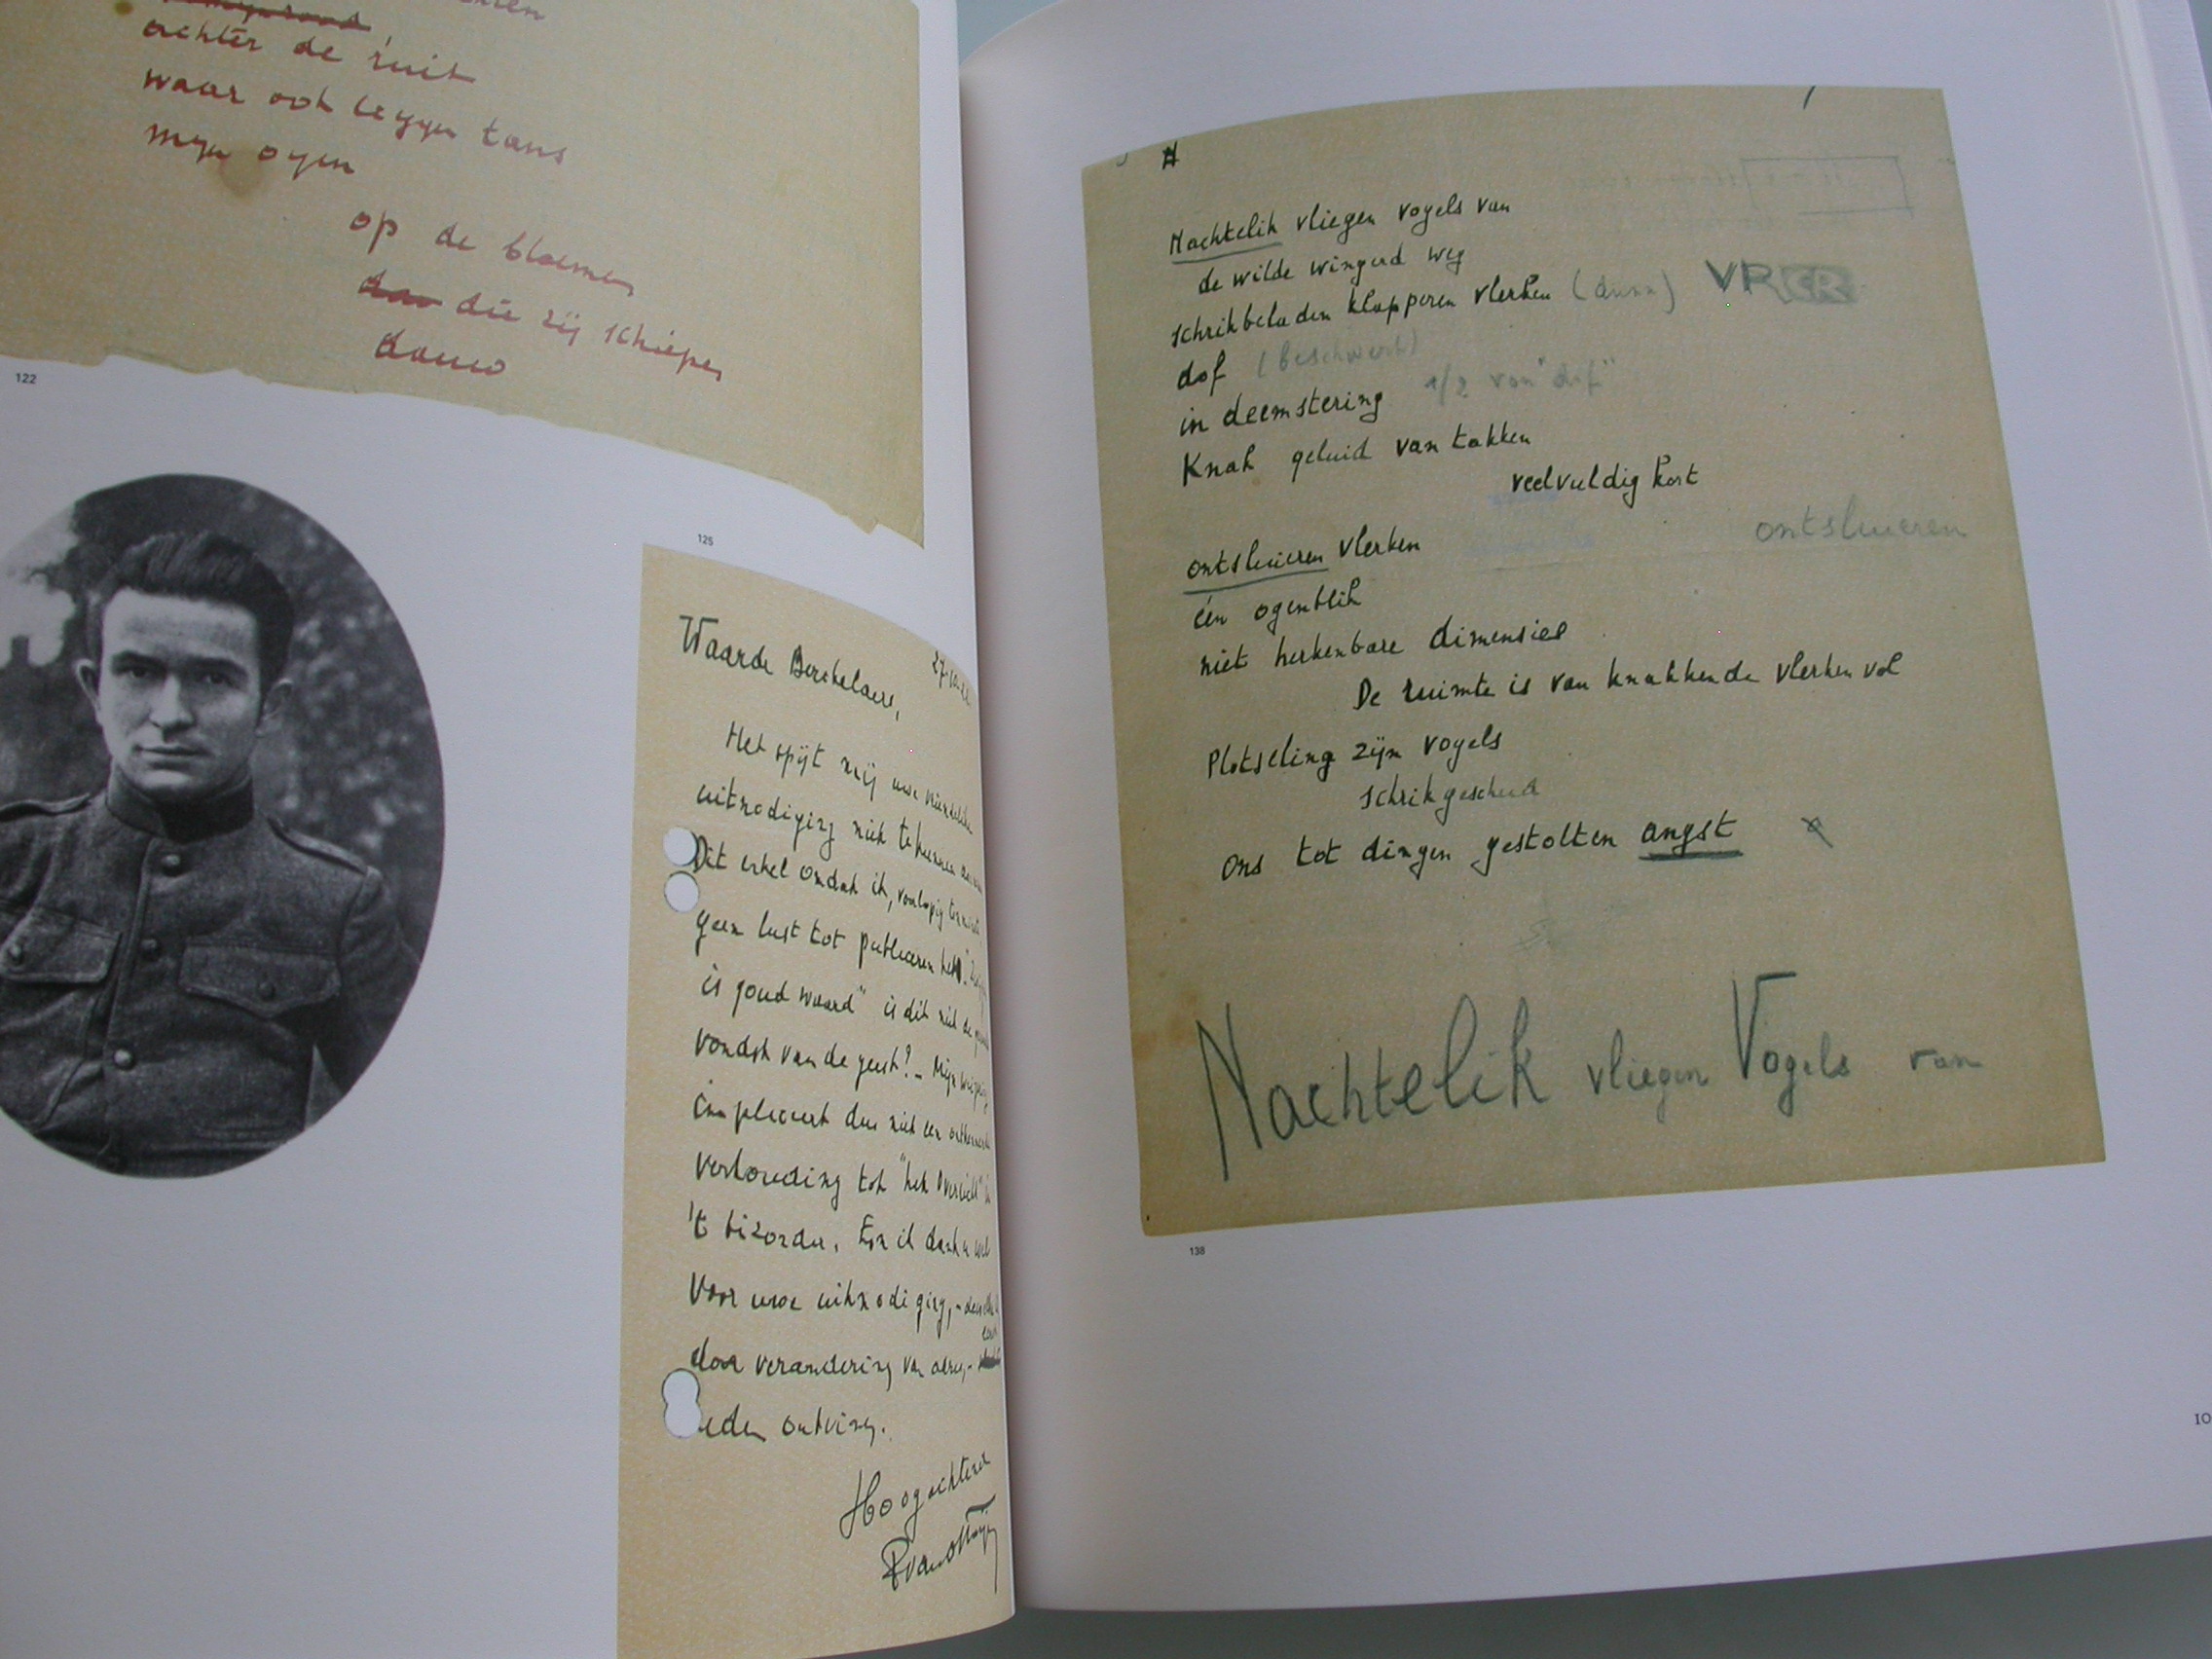 achter de ruit
waar ook leggen tans
mijn ogen
op de bloemen
die zij schiepen
dauw
122
125
Waarde Berckelaers,
Het spijt mij uwe vriendelike
uitnodiging niet te kunnen
Dit enkel omdat ik, voorlopig
geen lust tot publiceren heb.
is goud waard" is dit niet de
vondst van de geest? – Mijn
impliceert dus niet een
verhouding tot "het Overzicht" in
't bizonder. En ik dank u wel
voor uwe uitnodiging, –
door verandering van adres, –
heden ontving.
Hoogachtend
PvanOstaijen
Nachtelik vliegen vogels van
de wilde wingerd weg
schrikbeladen klapperen vlerken (dunn) VR CR
dof (beschwert)
in deemstering 1/2 von "dof"
Knak geluid van takken
veelvuldig kort
ontsluieren vlerken ontsluieren
één ogenblik
niet herkenbare dimensies
De ruimte is van knakkende vlerken vol
Plotseling zijn vogels
schrikgescheurd
ons tot dingen gestolten angst
Nachtelik vliegen Vogels van
138
10